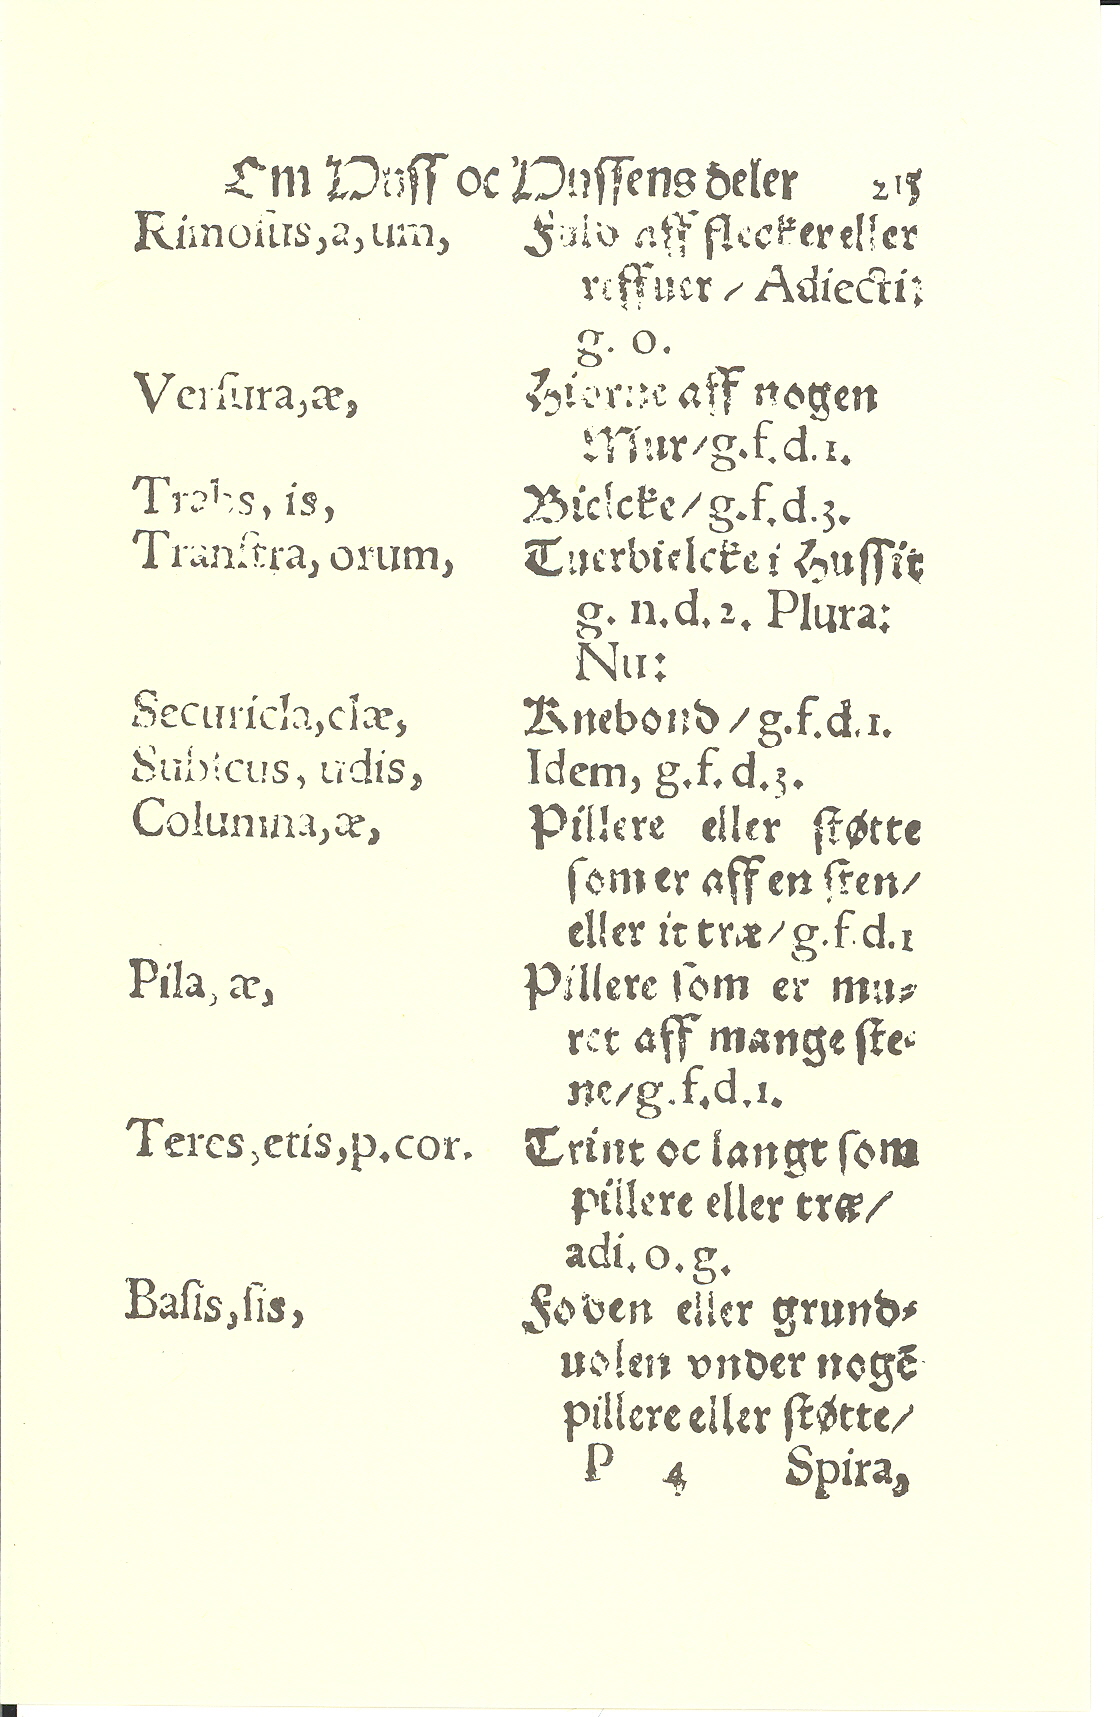 Om Huſſ oc Huſſens deler 215
Rimoſus, a, um, Fuld aff flecker eller
reffuer / Adiecti:
g. o.
Verſura, æ, Hiørne aff nogen
Mur / g. f. d. 1.
Trabs, is, Bielcke / g. f. d. 3.
Tranſtra, orum, Tuerbielcke i Huſſit
g. n. d. 2. Plura:
Nu:
Securicla, clæ, Knebond / g. f. d. 1.
Subſcus, udis, Idem, g. f. d. 3.
Columna, æ, Pillere eller ſtøtte
ſom er aff en ſten /
eller it træ / g. f. d. 1
Pila, æ, Pillere ſom er mu⸗
ret aff mange ſte⸗
ne / g. f. d. 1.
Teres, etis, p. cor. Trint oc langt ſom
pillere eller træ /
adi. o. g.
Baſis, ſis, Foden eller grund⸗
uolen vnder nogē
pillere eller ſtøtte /
P 4 Spira,